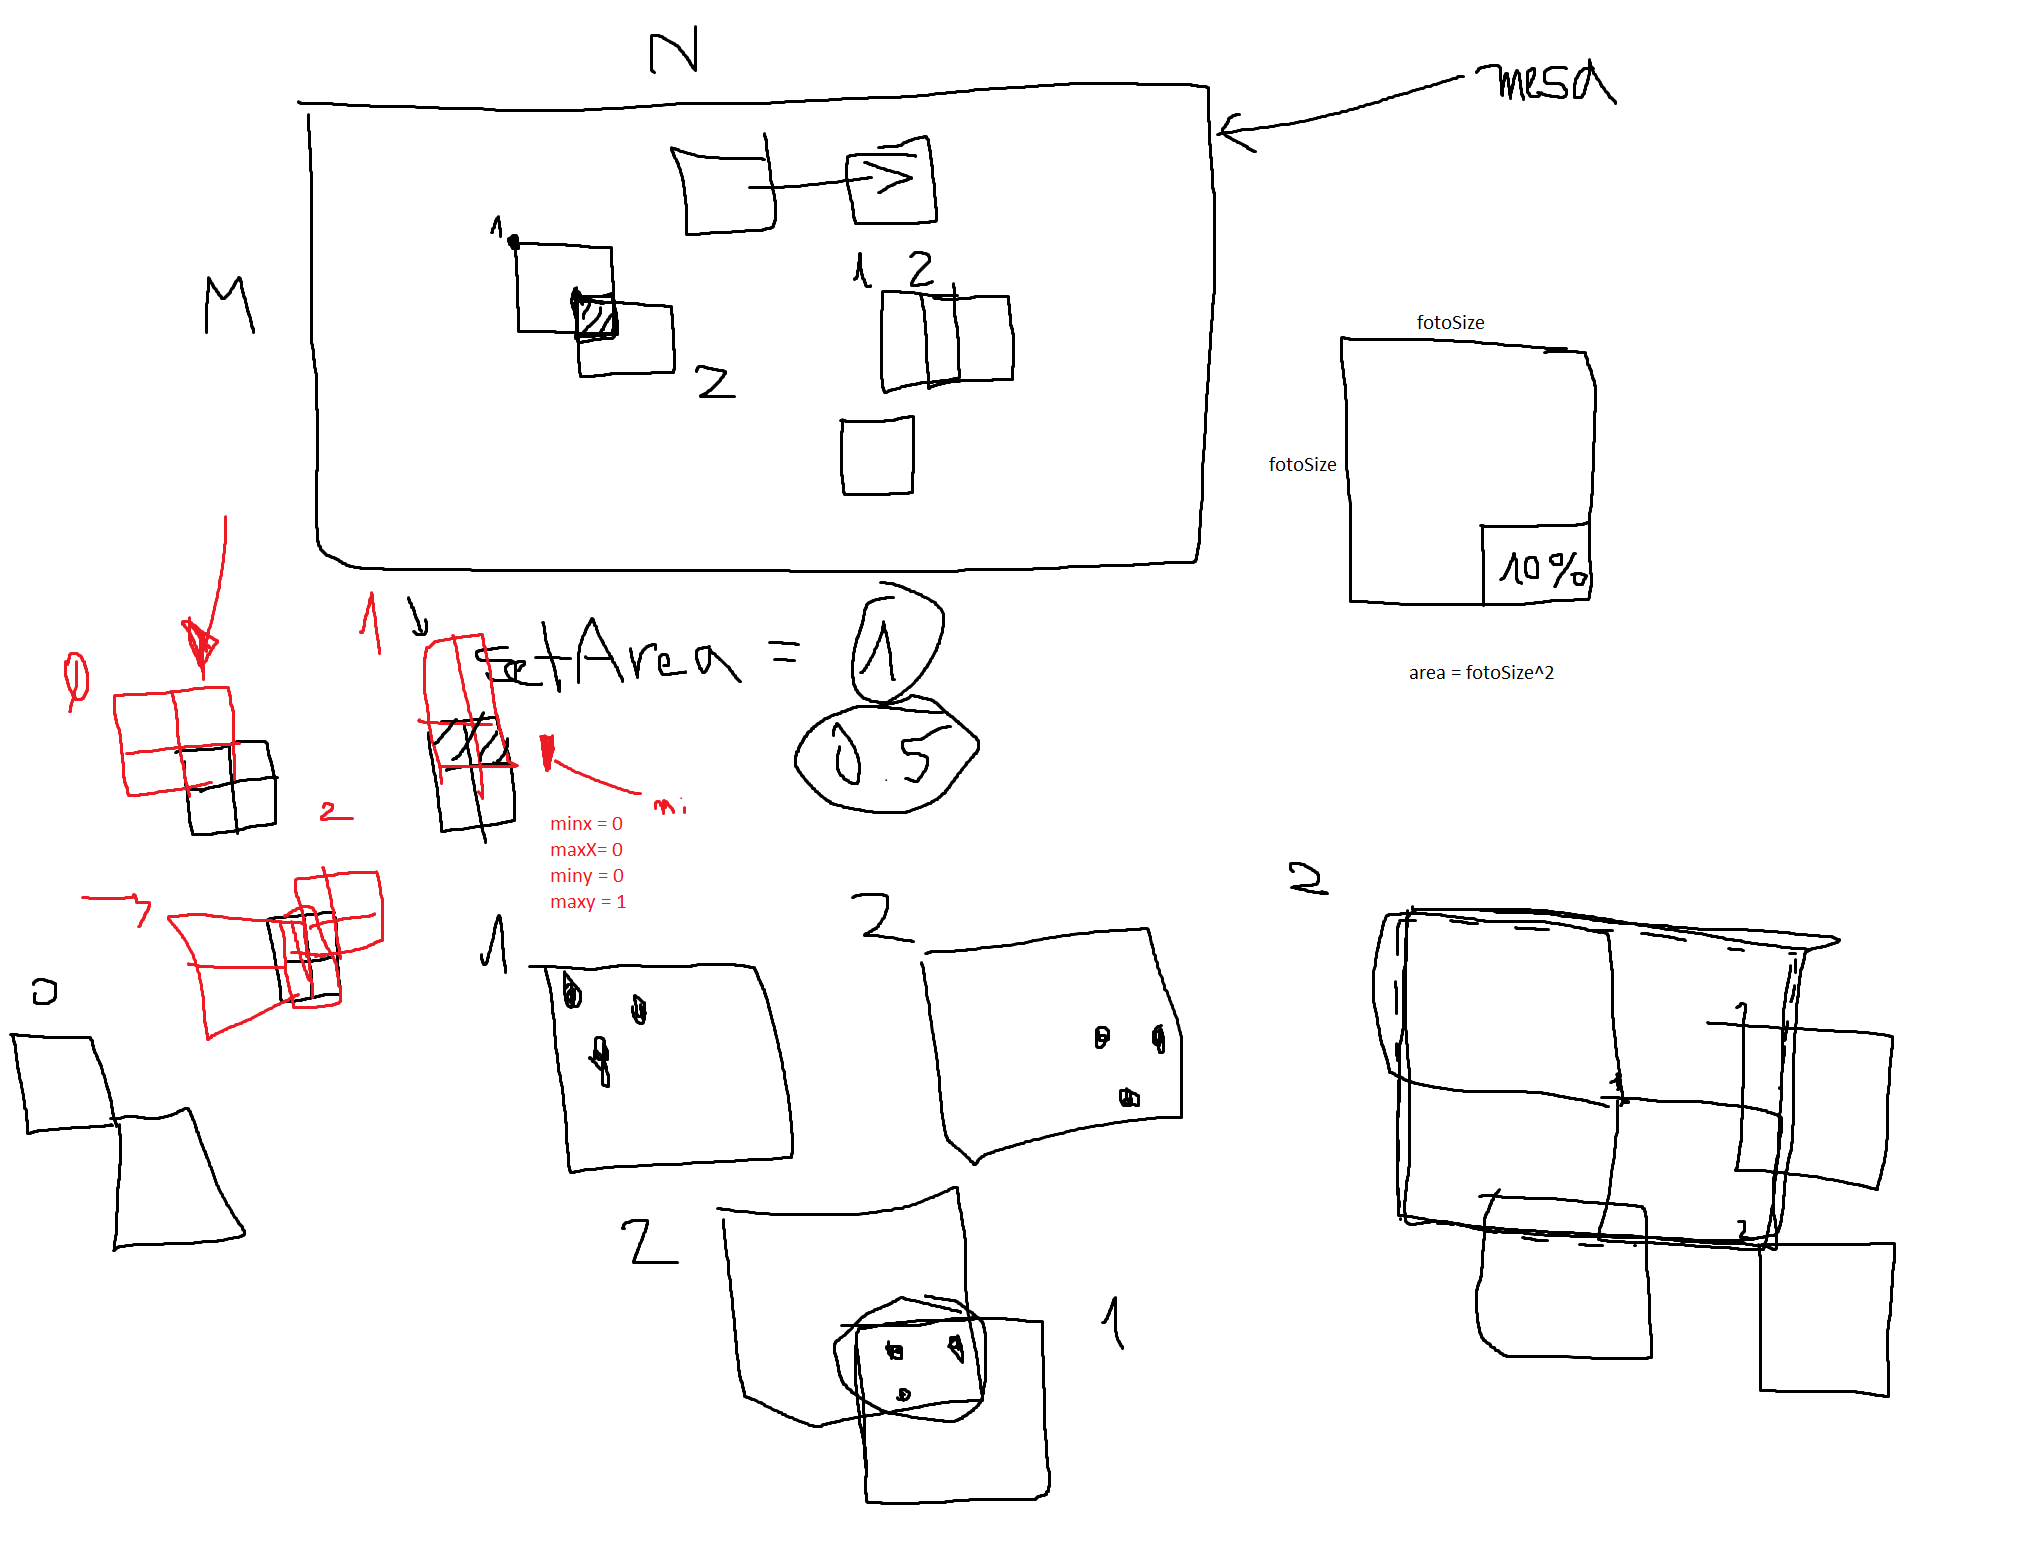 N
mesa
M
1
2
1 2
fotoSize
fotoSize
10%
area = fotoSize^2
0
1
setArea = 1
0.5
mi
minx = 0
maxX= 0
miny = 0
maxy = 1
2
0
1
2
2
2
1
1
2